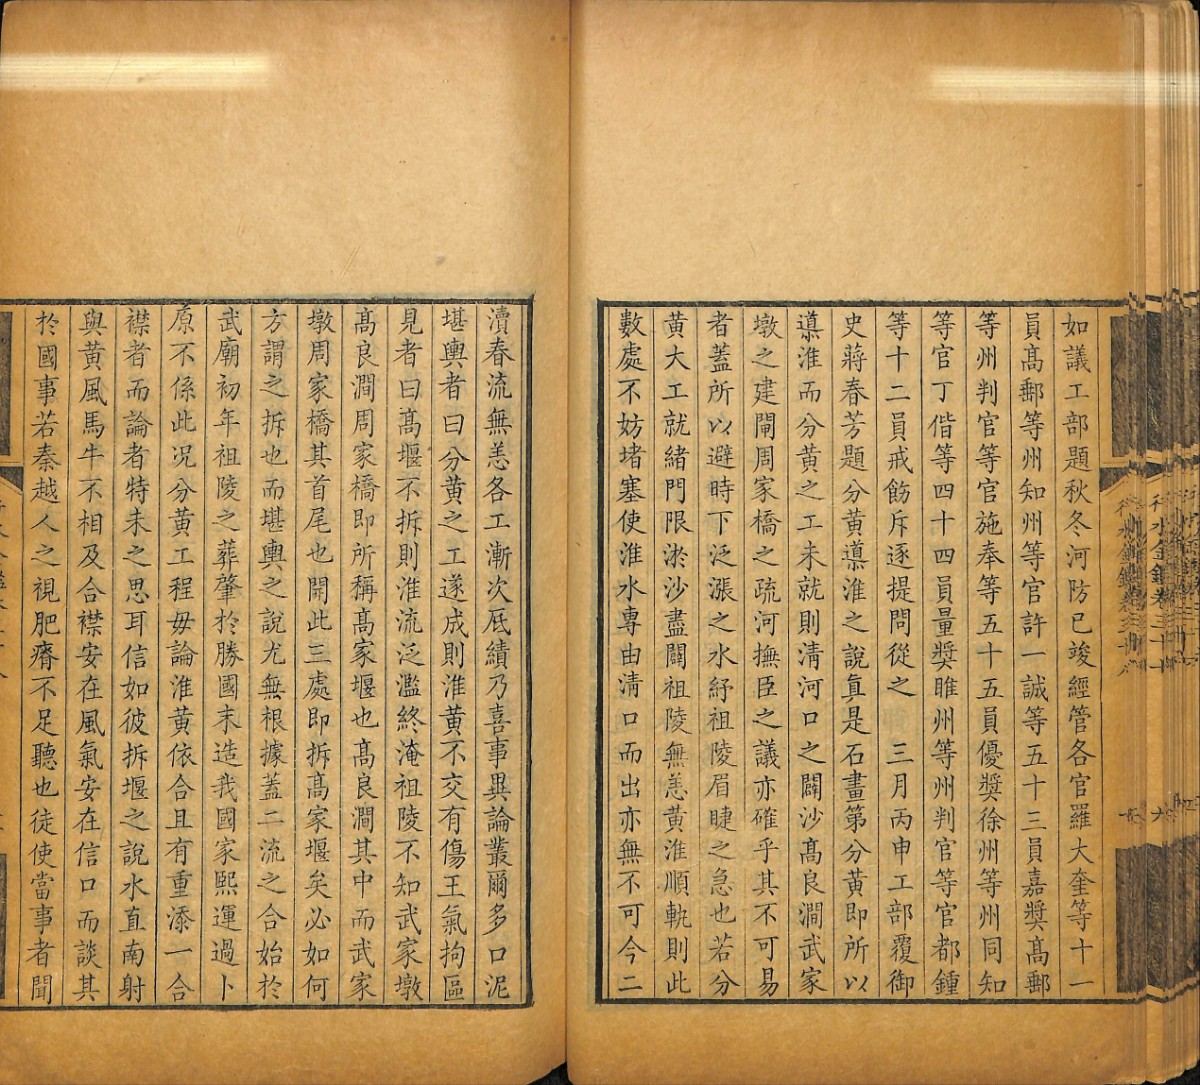 如議工部題秋冬河防已竣經管各官羅大奎等十一
員髙郵等州知州等官許一誠等五十三員嘉獎髙郵
等州判官等官施奉等五十五員優獎徐州等州同知
等官丁偕等四十四員量獎睢州等州判官等官都鍾
等十二員戒飭斥逐提問從之　三月丙申工部覆御
史蔣春芳題分黄導淮之說眞是石畫第分黄即所以
導淮而分黄之工未就則淸河口之闢沙髙良澗武家
墩之建閘周家橋之疏河撫臣之議亦確乎其不可易
者蓋所以避時下泛漲之水紓祖陵眉睫之急也若分
黄大工就緒門限淤沙盡闢祖陵無恙黄淮順軌則此
數處不妨堵塞使淮水專由淸口而出亦無不可今二
瀆春流無恙各工漸次厎績乃喜事異論叢爾多口泥
堪輿者曰分黄之工遂成則淮黄不交有傷王氣拘區
見者曰髙堰不拆則淮流泛濫終淹祖陵不知武家墩
髙良澗周家橋即所稱髙家堰也髙良澗其中而武家
墩周家橋其首尾也開此三處即拆髙家堰矣必如何
方謂之拆也而堪輿之說尤無根據蓋二流之合始於
武廟初年祖陵之葬肇於勝國末造我國家熙運過卜
原不係此况分黄工程毋論淮黄依合且有重添一合
襟者而論者特未之思耳信如彼拆堰之說水直南射
與黄風馬牛不相及合襟安在風氣安在信口而談其
於國事若秦越人之視肥瘠不足聽也徒使當事者聞